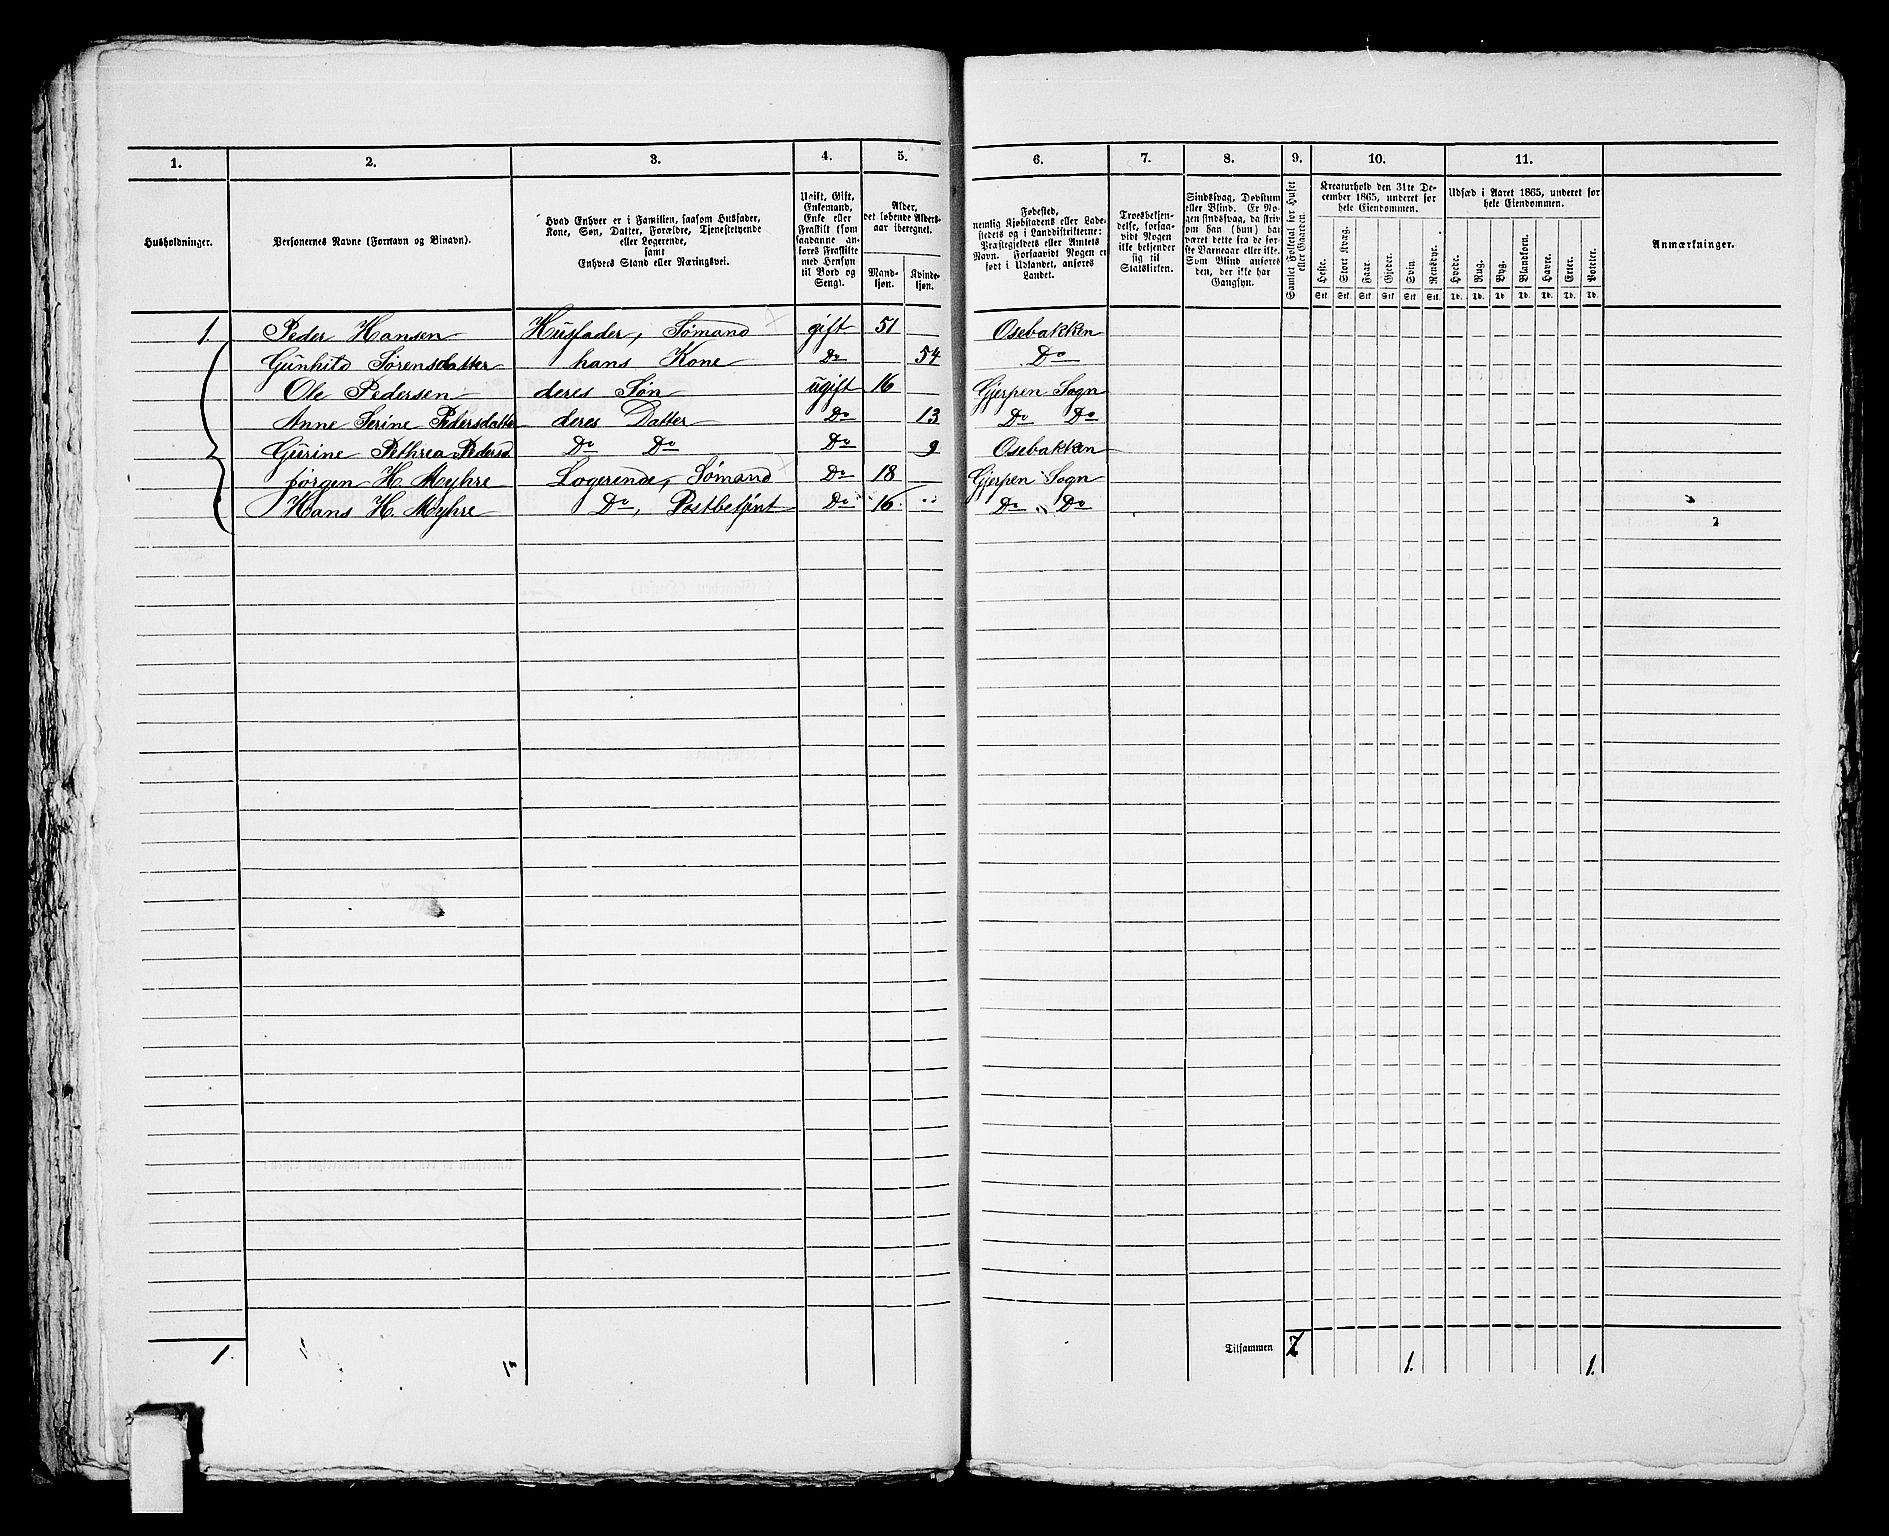 1. 2. 3. 4. 5. 6. 7. 8. 9. 10. 11.
Husholdninger.
Personernes Navne (Fornavn og Binavn).
Hvad Enhver er i Familien, saasom Husfader,
Kone, Søn, Datter, Forældre, Tjenestetyende
eller Logerende,
samt
Enhvers Stand eller Næringsvei.
Ugift, Gift,
Enkemand,
Enke eller
Fraskilt (som
saadanne an-
føres Fraskilte
med Hensyn
til Bord og
Seng).
Alder,
det løbende Alders-
aar iberegnet.
Mand-
kjøn.
Kvinde-
kjøn.
Fødested,
nemlig Kjøbstadens eller Lade-
stedets og i Landdistrikterne:
Præstegjeldets eller Amtets
Navn. Forsaavidt Nogen er
født i Udlandet, anføres
Landet.
Troesbekjen-
delse, forsaa-
vidt Nogen
ikke bekjender
sig til
Statskirken.
Sindssvag, Døvstum
eller Blind. Er No-
gen sindssvag, da skriv
om han (hun) har
været dette fra de før-
ste Barneaar eller ikke.
Som Blind anføres
den, der ikke har
Gangsyn.
Samlet Folketal for Huset
eller Gaarden.
Kreaturhold den 31te De-
cember 1865, underet for
hele Eiendommen.
Heste. Stort Kvæg. Faar. Gjeder. Svin. Rensdyr.
Stk. Stk. Stk. Stk. Stk. Stk.
Udsæd i Aaret 1865, underet for
hele Eiendommen.
Hvede. Rug. Byg. Blandkorn. Havre. Erter. Poteter.
Td. Td. Td. Td. Td. Td. Td.
Anmærkninger.
1. Peder Hansen Husfader, Sømand gift 51 Osebakken
Gunhild Sørensdatter hans Kone Do 54 Do
Ole Pedersen deres Søn ugift 16 Gjerpen Sogn
Anne Serine Pedersdatter deres Datter Do 13 Do Do
Gurine Pethrea Pedersd Do Do Do 9 Osebakken
Jørgen H. Myhre Logerende, Sømand Do 18 Gjerpen Sogn
Hans H. Myhre Do, Postbetjent Do 16 Do Do
1. Tilsammen 7 1. 1.